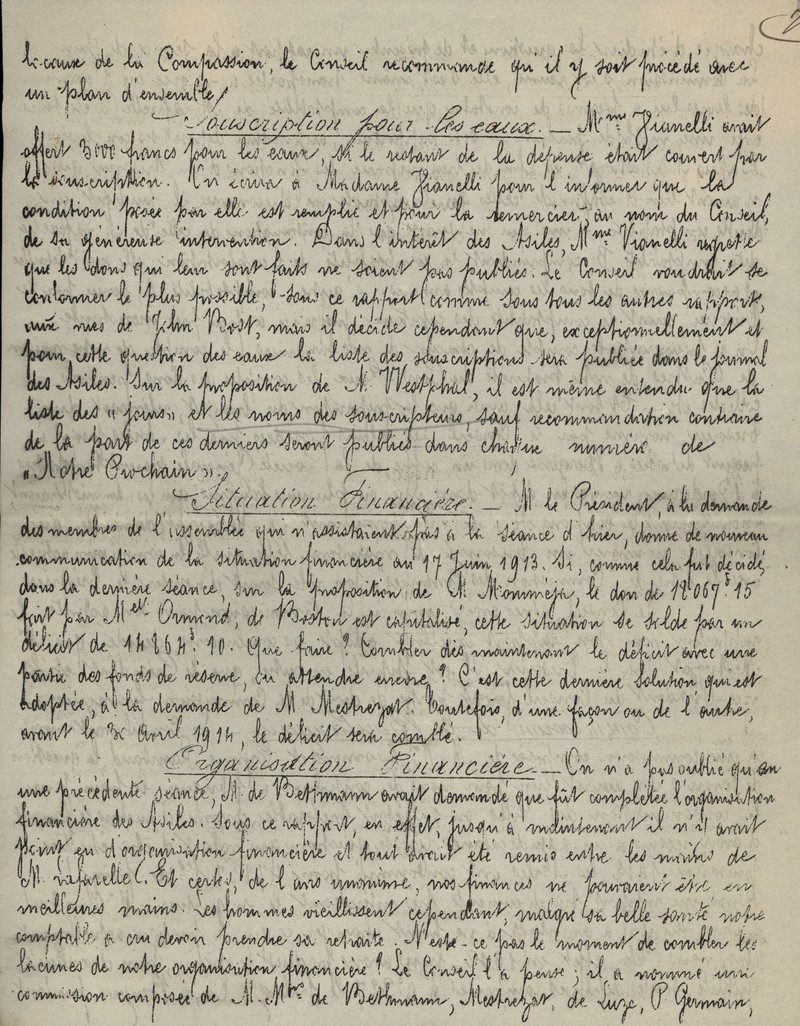 la cause de la Compassion, le Conseil recommande qu'il y soit procédé avec
un plan d'ensemble/
Souscription pour les eaux. — Mme Vianelli avait
offert 3000 francs pour les eaux, si le restant de la dépense était couvert par
la souscription. On écrira à Madame Vianelli pour l'informer que la
condition posée par elle est remplie et pour la remercier, au nom du Conseil,
de sa généreuse intervention. Dans l'intérêt des Asiles, Mme Vianelli regrette
que les dons qui leur sont faits ne soient pas publiés. Le Conseil voudrait se
conformer le plus possible, sous ce rapport comme sous tous les autres rapports,
aux vues de John Bost, mais il décide cependant que, exceptionnellement et
pour cette question des eaux la liste des souscriptions sera publiée dans le journal
des Asiles. Sur la proposition de M. Westphal, il est même entendu que la
liste des « jours » et les noms des souscripteurs, sauf recommandation contraire
de la part de ces derniers seront publiés dans chaque numéro de
« Notre Prochain ».
Situation Financière. — M le Président, à la demande
des membres de l'assemblée qui n'assistaient pas à la séance d'hier, donne de nouveau
communication de la situation financière au 17 Juin 1913. Si, comme cela fut décidé,
dans la dernière séance, sur la proposition de M. Momméja, le don de 12067f 15
fait par Melle Ormond, de Boston est capitalisé, cette situation se solde par un
déficit de 14264f 10. Que faire ? Combler dès maintenant le déficit avec une
partie des fonds de réserve, ou attendre encore ? C'est cette dernière solution qui est
adoptée, à la demande de M Mestrezat. Toutefois, d'une façon ou de l'autre,
avant le 30 Avril 1914, le déficit sera comblé.
Organisation Financière. — On n'a pas oublié qu'en
une précédente séance, M. de Bethmann avait demandé que fût complétée l'organisation
financière des Asiles. Sous ce rapport, en effet, jusqu'à maintenant il n'y avait
point eu d'organisation financière et tout avait été remis entre les mains de
M. Rafarelle. Et certes, de l'avis unanime, nos finances ne pouvaient être en
meilleures mains. Les hommes vieillissent cependant, malgré sa belle santé notre
comptable a cru devoir prendre sa retraite. N'est-ce pas le moment de combler les
lacunes de notre organisation financière ? Le Conseil l'a pensé ; il a nommé une
commission composée de M. Mrs de Bethmann, Mestrezat, de Luze, P. Germain,